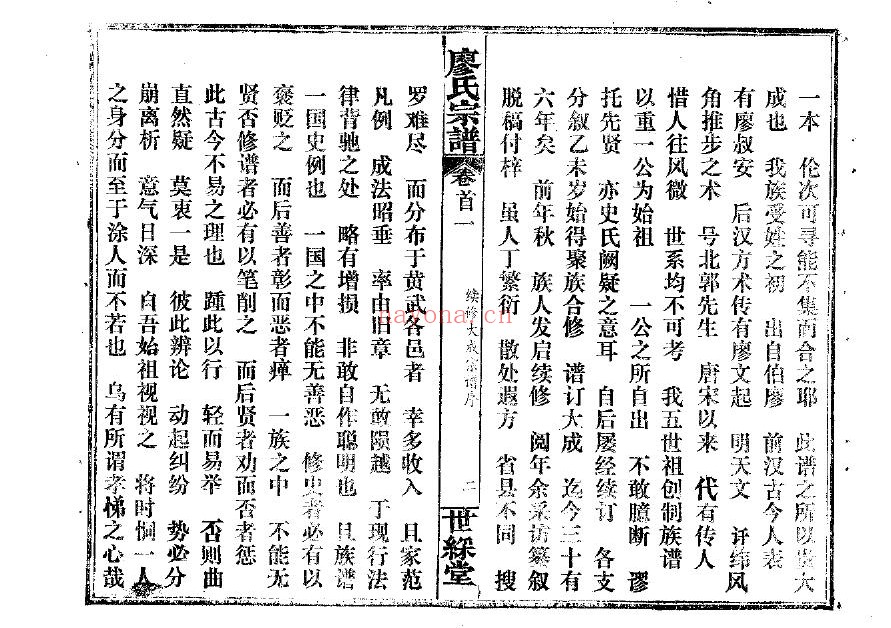 一本 伦次可寻能不集而合之耶 此谱之所以贵大
成也 我族受姓之初 出自伯廖 前汉古今人表
有廖叔安 后汉方术传有廖文起 明天文 评纬风
角推步之术 号北郭先生 唐宋以来 代有传人
惜人往风微 世系均不可考 我五世祖创制族谱
以重一公为始祖 一公之所自出 不敢臆断 谬
托先贤 亦史氏阙疑之意耳 自后屡经续订 各支
分叙乙未岁始得聚族合修 谱订大成 迄今三十有
六年矣 前年秋 族人发启续修 阅年余采访纂叙
脱稿付梓 虽人丁繁衍 散处遐方 省县不同 搜
廖氏宗譜
卷首一
续修大成宗谱序
二
世綵堂
罗难尽 而分布于黄武各邑者 幸多收入 且家范
凡例 成法昭垂 率由旧章 无敢陨越 于现行法
律背驰之处 略有增损 非敢自作聪明也 且族谱
一国史例也 一国之中不能无善恶 修史者必有以
褒贬之 而后善者彰而恶者瘅 一族之中 不能无
贤否修谱者必有以笔削之 而后贤者劝而否者惩
此古今不易之理也 踵此以行 轻而易举 否则曲
直然疑 莫衷一是 彼此辨论 动起纠纷 势必分
崩离析 意气日深 自吾始祖视之 将时恫一人
之身分而至于涂人而不若也 乌有所谓孝悌之心哉
nayona.cn